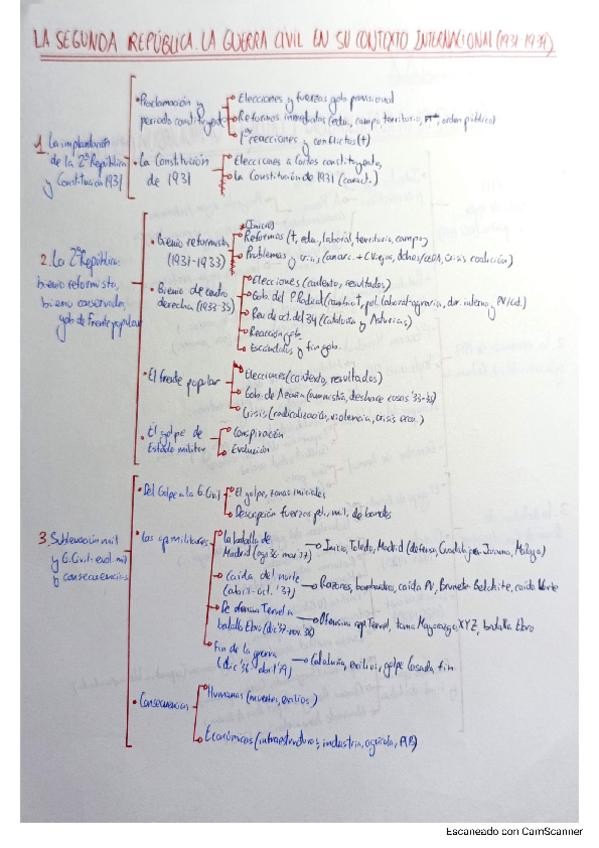 LA SEGUNDA REPÚBLICA. LA GUERRA CIVIL EN SU CONTEXTO INTERNACIONAL (1931-1939)
1. La implantación de la 2ª República y Constitución 1931
• Proclamación y periodo constituyente
Elecciones y fuerzas gob provisional
Reformas inmediatas (edu, campo, territorio, orden público)
1ªs reacciones y conflictos (†)
• La Constitución de 1931
Elecciones a Cortes constituyentes
La Constitución de 1931 (caract.)
2. La 2ª República: bienio reformista, bienio conservador, gob de Frente popular
• Bienio reformista (1931-1933)
(Inicio)
Reformas (†, edu, laboral, territorio, campo)
Problemas y crisis (anarc. + CViejas, dchas/CEDA, crisis coalición)
• Bienio de centro derecha (1933-35)
Elecciones (contexto, resultados)
Gob. del P. Radical (cambio †, pol. laboral-agraria, interno y PV/cat.)
Rev de oct. del 34 (Cataluña y Asturias)
Reacción gob.
Escándalos y fin gob.
• El frente popular
Elecciones (contexto, resultados)
Gob. de Azaña (amnistía, deshace cosas '33-35)
Crisis (radicalización, violencia, crisis econ.)
• El golpe de Estado militar
Conspiración
Evolución
3. Sublevación mil y G. Civil: evol. mil y consecuencias
• Del Golpe a la G. Civil
El golpe, zonas iniciales
Descripción fuerzas pol. mil. de bandos
• Las op militares
La batalla de Madrid (ago 36 - mar '37)
Inicio, Toledo, Madrid (defensa, Guadalajara, Jarama, Málaga)
Caída del norte (abril-oct. '37)
Razones, bombardeo, caída PV, Brunete, Belchite, caída Norte
De ofensiva Teruel a batalla Ebro (dic '37-nov. 38)
Ofensiva rep Teruel, toma batalla Ebro
Fin de la guerra
Cataluña, exilios, golpe Casado, fin
• Consecuencias
Humanas (muertes, exilios)
Económicas (infraestructuras, industria, agrícola, PIB)
Escaneado con CamScanner